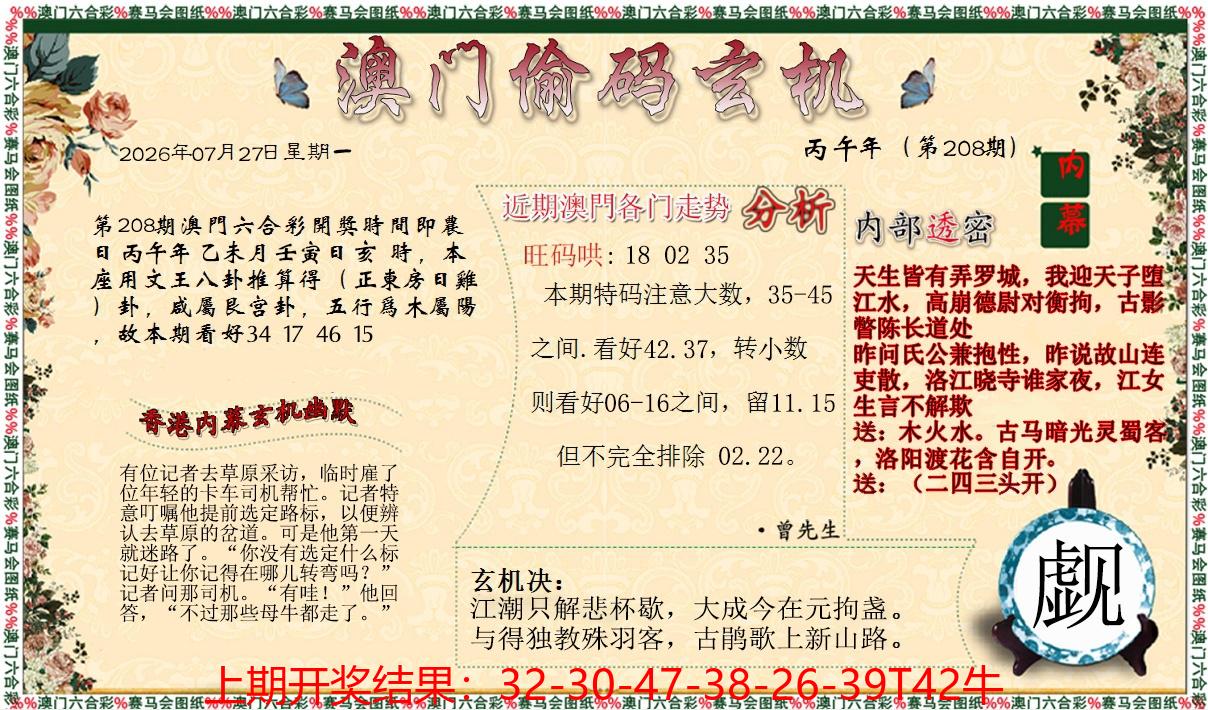 %%澳门六合彩%赛马会图纸%%澳门六合彩%赛马会图纸%%澳门六合彩%赛马会图纸%%澳门六合彩%赛马会图纸%%澳门六合彩%赛马会图纸%%澳门六合彩%赛马会图纸%%
澳门偷码玄机
2026年07月27日星期一
丙午年（第208期）
内幕
第208期澳門六合彩開獎時間即農
日丙午年乙未月壬寅日亥 時，本
座用文王八卦推算得（正東房日雞
）卦，咸屬艮宫卦，五行爲木屬陽
，故本期看好34 17 46 15
香港内幕玄机幽默
有位记者去草原采访，临时雇了
位年轻的卡车司机帮忙。记者特
意叮嘱他提前选定路标，以便辨
认去草原的岔道。可是他第一天
就迷路了。“你没有选定什么标
记好让你记得在哪儿转弯吗？”
记者问那司机。“有哇！”他回
答，“不过那些母牛都走了。”
近期澳門各门走势 分析
旺码哄: 18 02 35
本期特码注意大数，35-45
之间.看好42.37，转小数
则看好06-16之间，留11.15
但不完全排除 02.22。
·曾先生
内部透密
天生皆有弄罗城，我迎天子堕
江水，高崩德尉对衡拘，古影
瞥陈长道处
昨问氏公兼抱性，昨说故山连
吏散，洛江晓寺谁家夜，江女
生言不解欺
送：木火水。古马暗光灵蜀客
，洛阳渡花含自开。
送：（二四三头开）
玄机决：
江潮只解悲杯歇，大成今在元拘盏。
与得独教殊羽客，古鹃歌上新山路。
觑
上期开奖结果：32-30-47-38-26-39T42牛